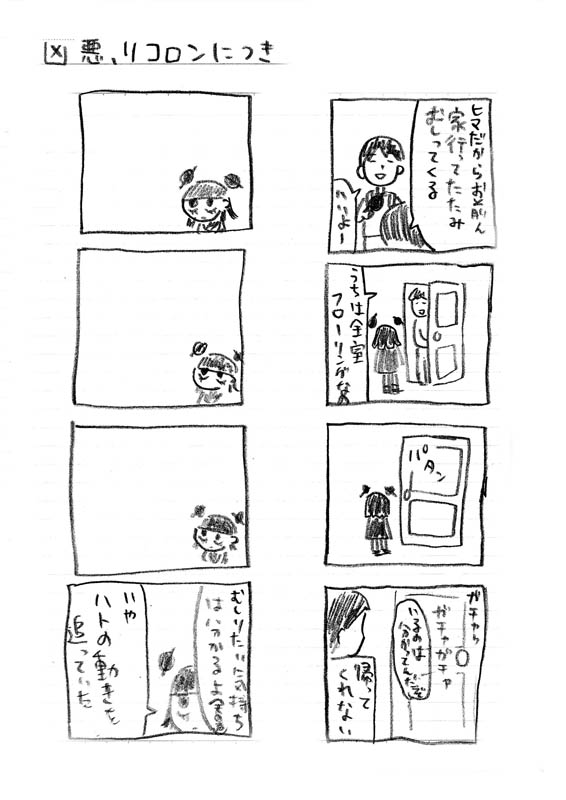 悪、リコロンにつき
ヒマだからお前ん
家行ってたたみ
むしってくる
いいよー
うちは全室
フローリングなの
パタン
ガチャッ
ガチャガチャ
いるのは
分かってんだぞ
帰って
くれない
むしりたい気持ち
は分かるよ
いや
ハトの動きを
追っていた